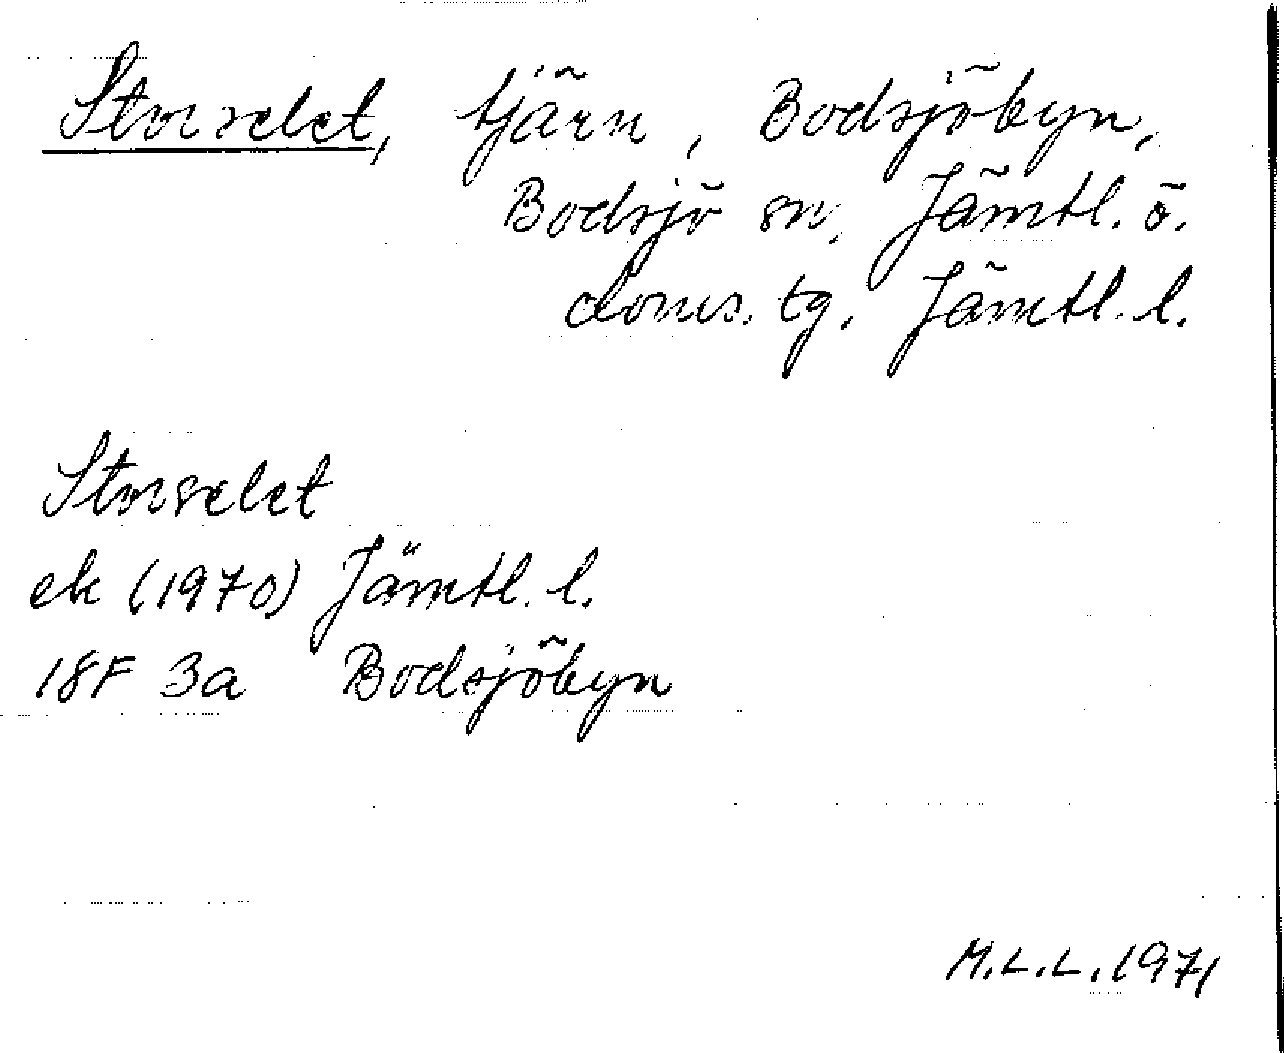 Storselet, tjärn, Bodsjöbyn,
Bodsjö sn, Jämtl. ö.
doms. tg. Jämtl. l.
Storselet
ek (1970) Jämtl. l.
18F 3a Bodsjöbyn
M.L.L. 1971